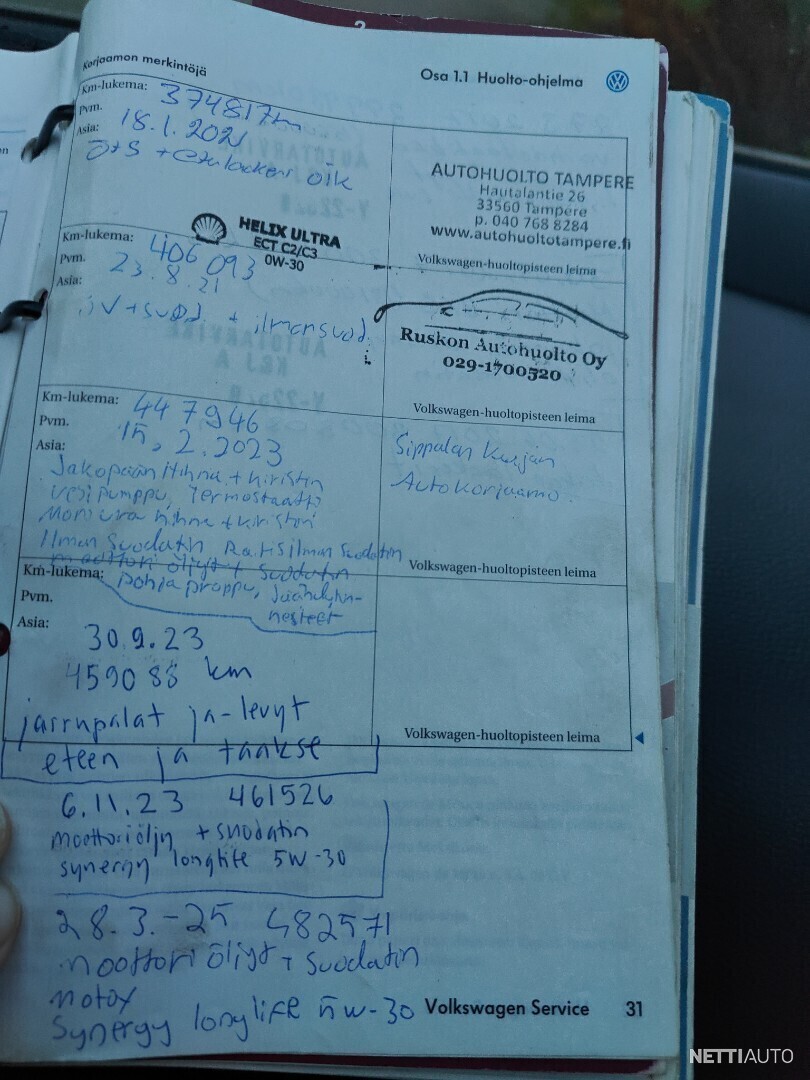 Korjaamon merkintöjä
Osa 1.1 Huolto-ohjelma
Km-lukema: 374817km
Pvm. 18.1.2021
Asia: Ö+S + etulokkari oik
AUTOHUOLTO TAMPERE
Hautalantie 26
33560 Tampere
p. 040 768 8284
www.autohuoltotampere.fi
Volkswagen-huoltopisteen leima
HELIX ULTRA
ECT C2/C3
0W-30
Km-lukema: 406 093
Pvm. 23.8.21
Asia: öv+suod. + ilmansuod.
Ruskon Autohuolto Oy
029-1700520
Volkswagen-huoltopisteen leima
Km-lukema: 447946
Pvm. 15.2.2023
Asia:
Jakopään Hihna + kiristin
Vesipumppu, Termostaatto
Moniura hihna + kiristin
Ilman Suodatin Raitisilman Suodatin
moottori öljyt + suodatin
Sippolan
Autokorjaamo.
Volkswagen-huoltopisteen leima
Km-lukema: pohja proppu, Jäähdytin-
nesteet
Pvm.
Asia:
30.9.23
459088 km
jarrupalat ja -levyt
eteen ja taakse
Volkswagen-huoltopisteen leima
6.11.23 461526
moottoriöljy + suodatin
synergy longlife 5W-30
28.3.-25 482571
moottori öljyt + suodatin
motox
Synergy longlife 5w-30
Volkswagen Service 31
NETTIAUTO